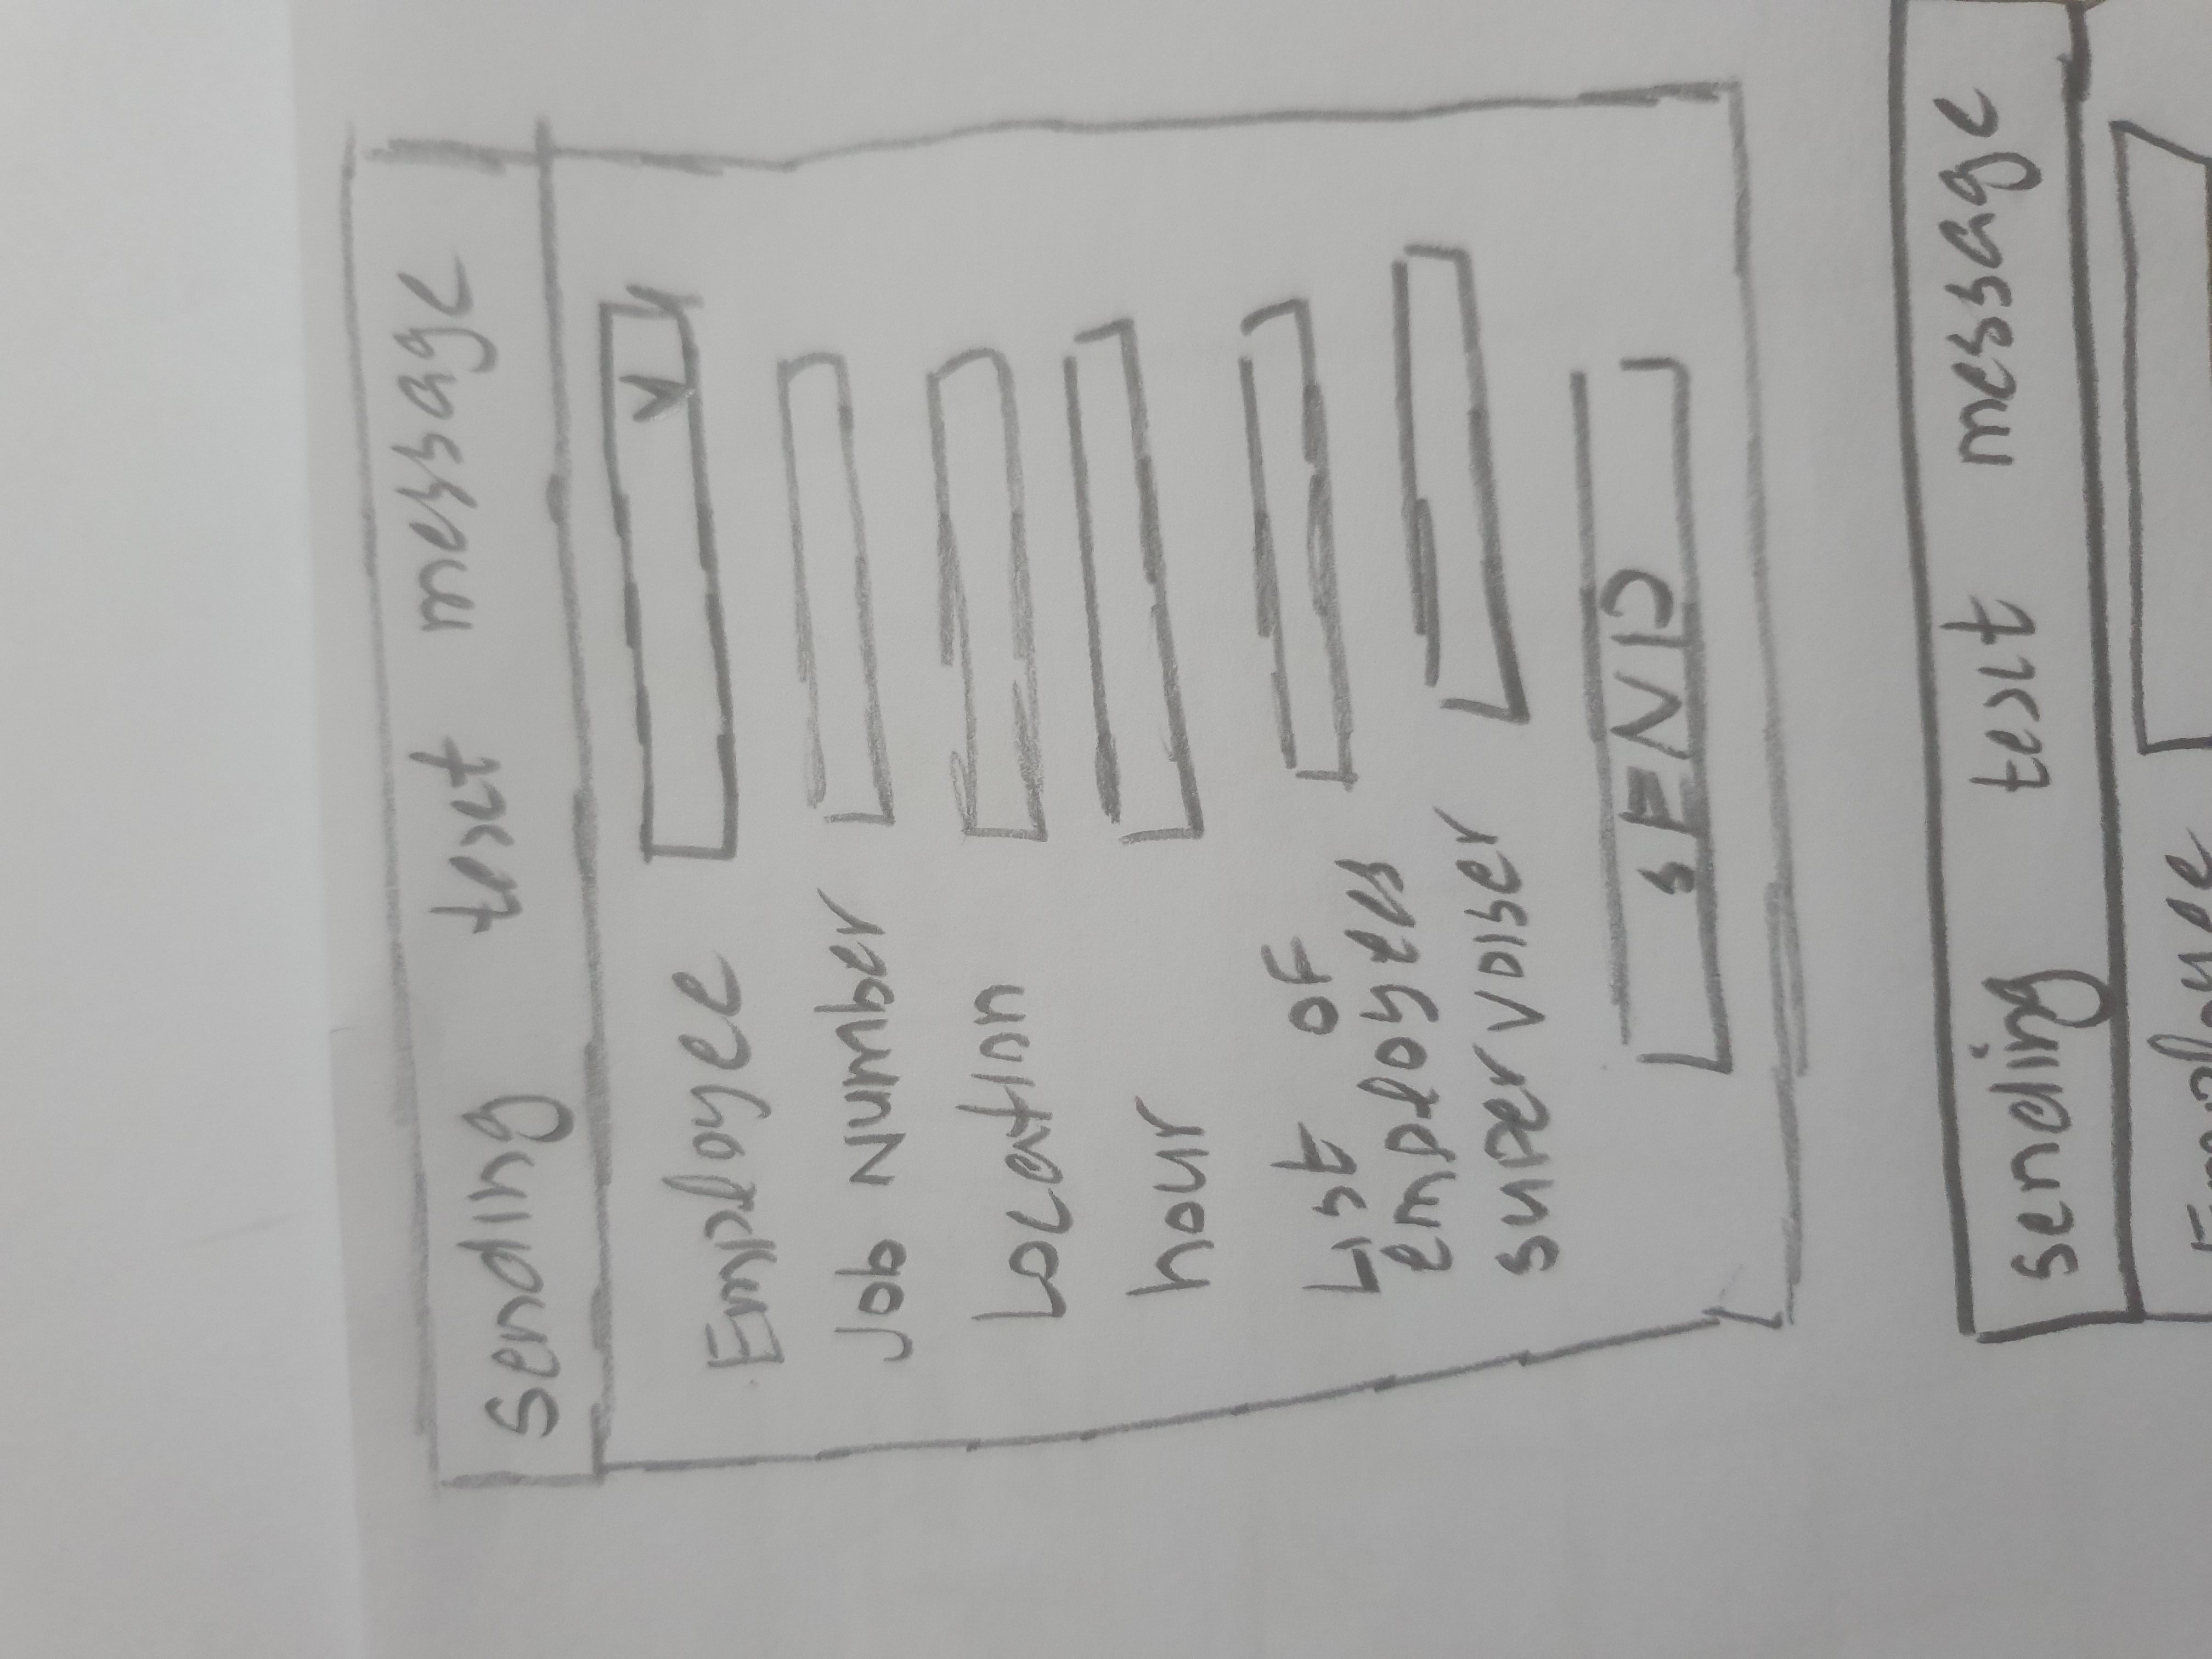 sending text message
Employee
Job Number
Location
hour
List of
employees
supervoiser
SEND
sending text message
Employee